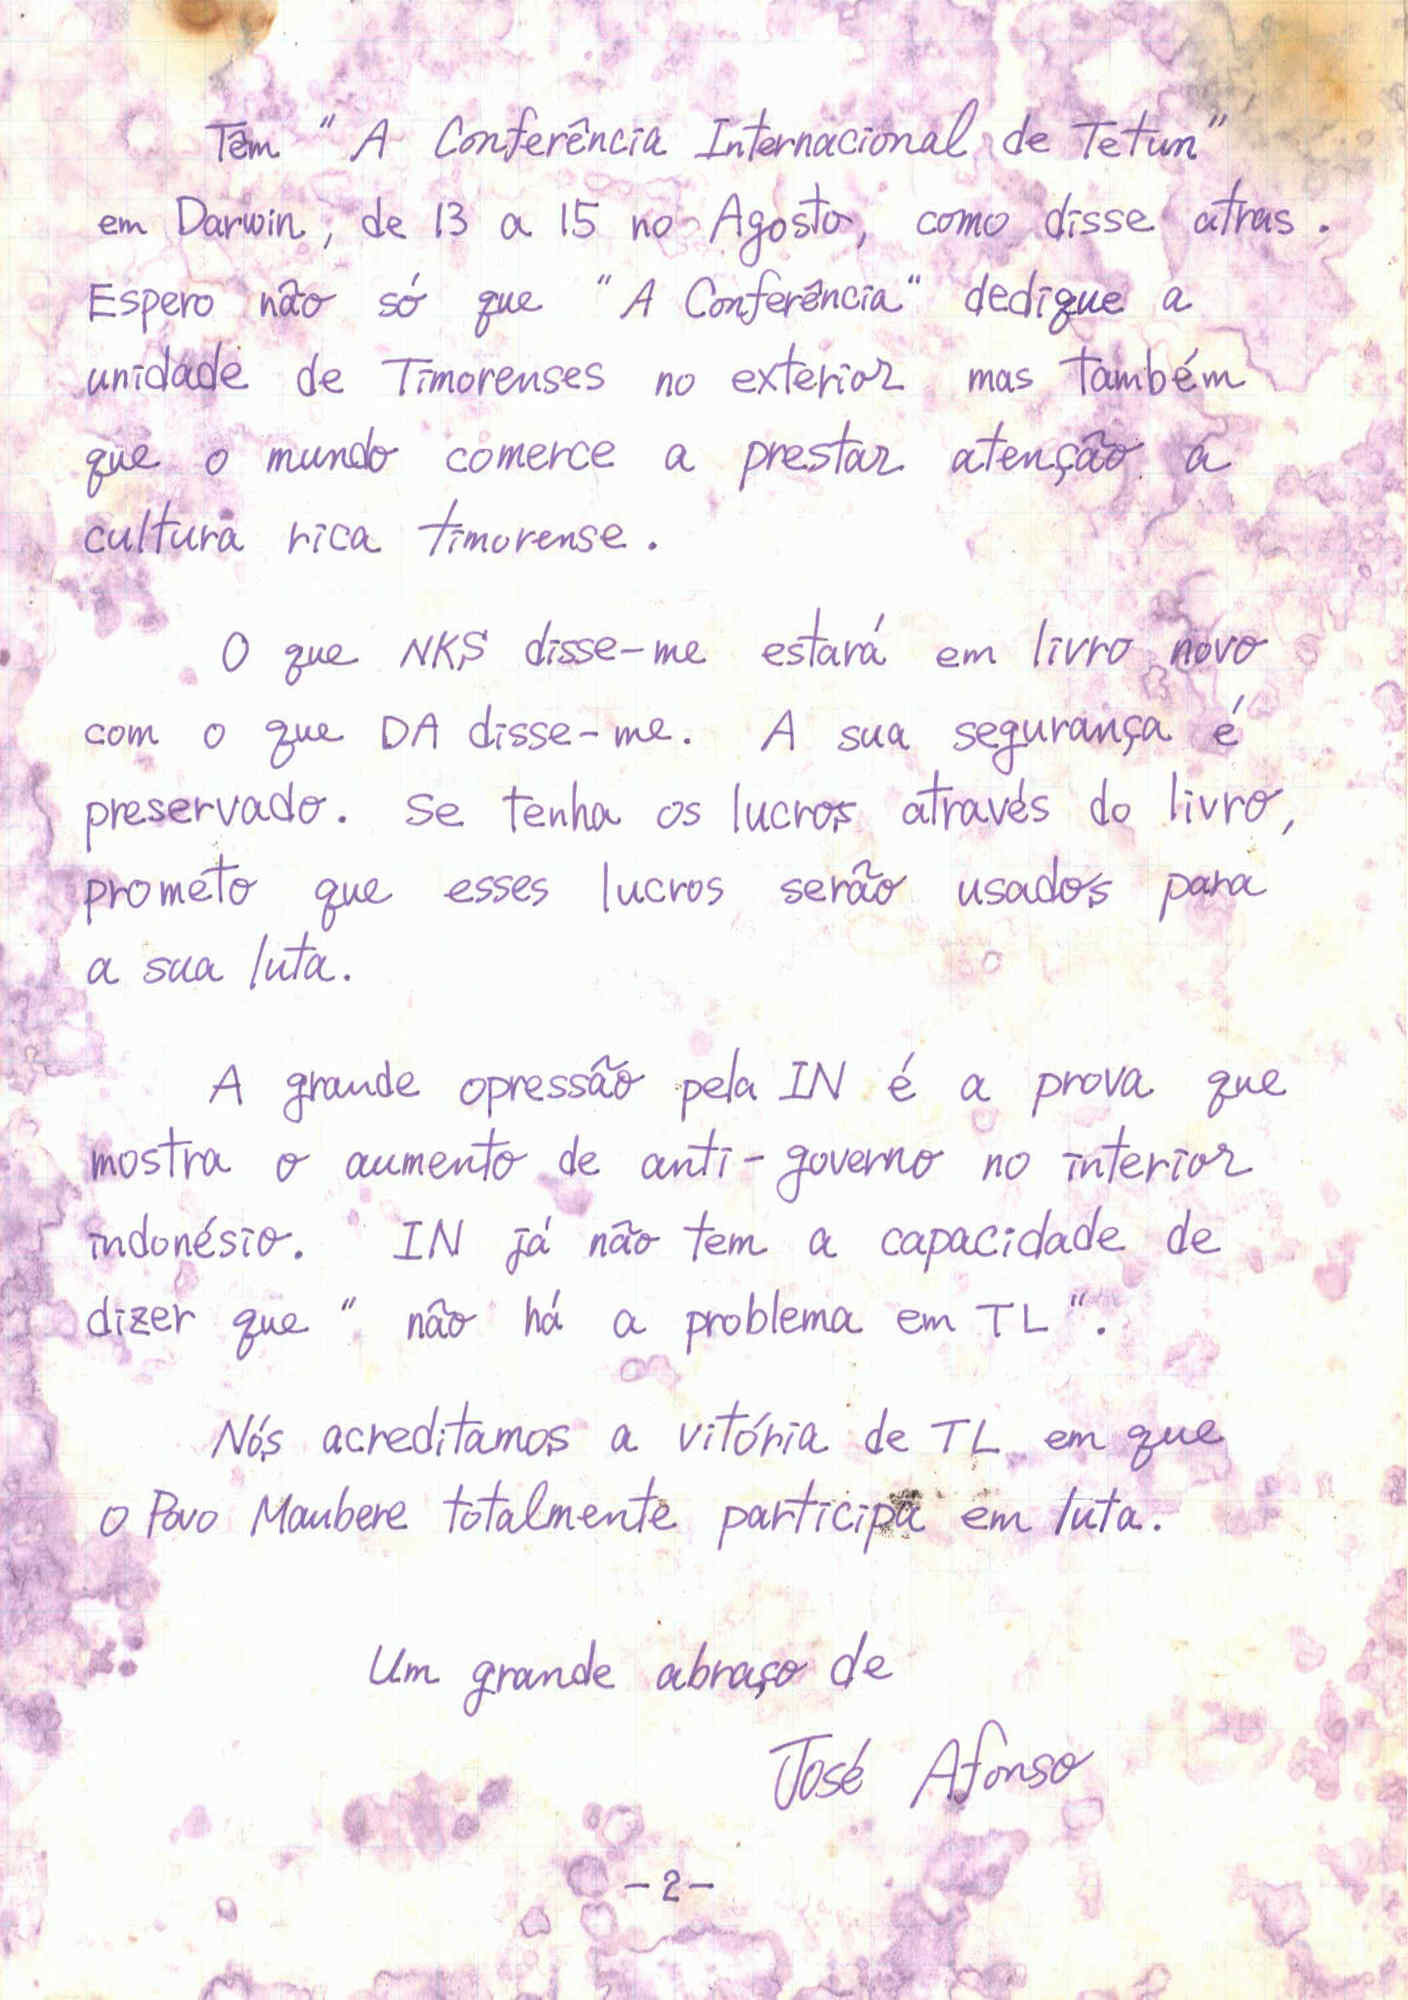 Têm "A Conferência Internacional de Tetum"
em Darwin, de 13 a 15 no Agosto, como disse atras.
Espero não só que "A Conferência" dedique a
unidade de Timorenses no exterior mas também
que o mundo comerce a prestar atenção a
cultura rica timorense.
O que NKS disse-me estará em livro novo
com o que DA disse-me. A sua segurança é
preservado. Se tenha os lucros através do livro,
prometo que esses lucros serão usados para
a sua luta.
A grande opressão pela IN é a prova que
mostra o aumento de anti-governo no interior
indonésio. IN já não tem a capacidade de
dizer que "não há a problema em TL".
Nós acreditamos a vitória de TL em que
o Povo Maubere totalmente participa em luta.
Um grande abraço de
José Afonso
-2-